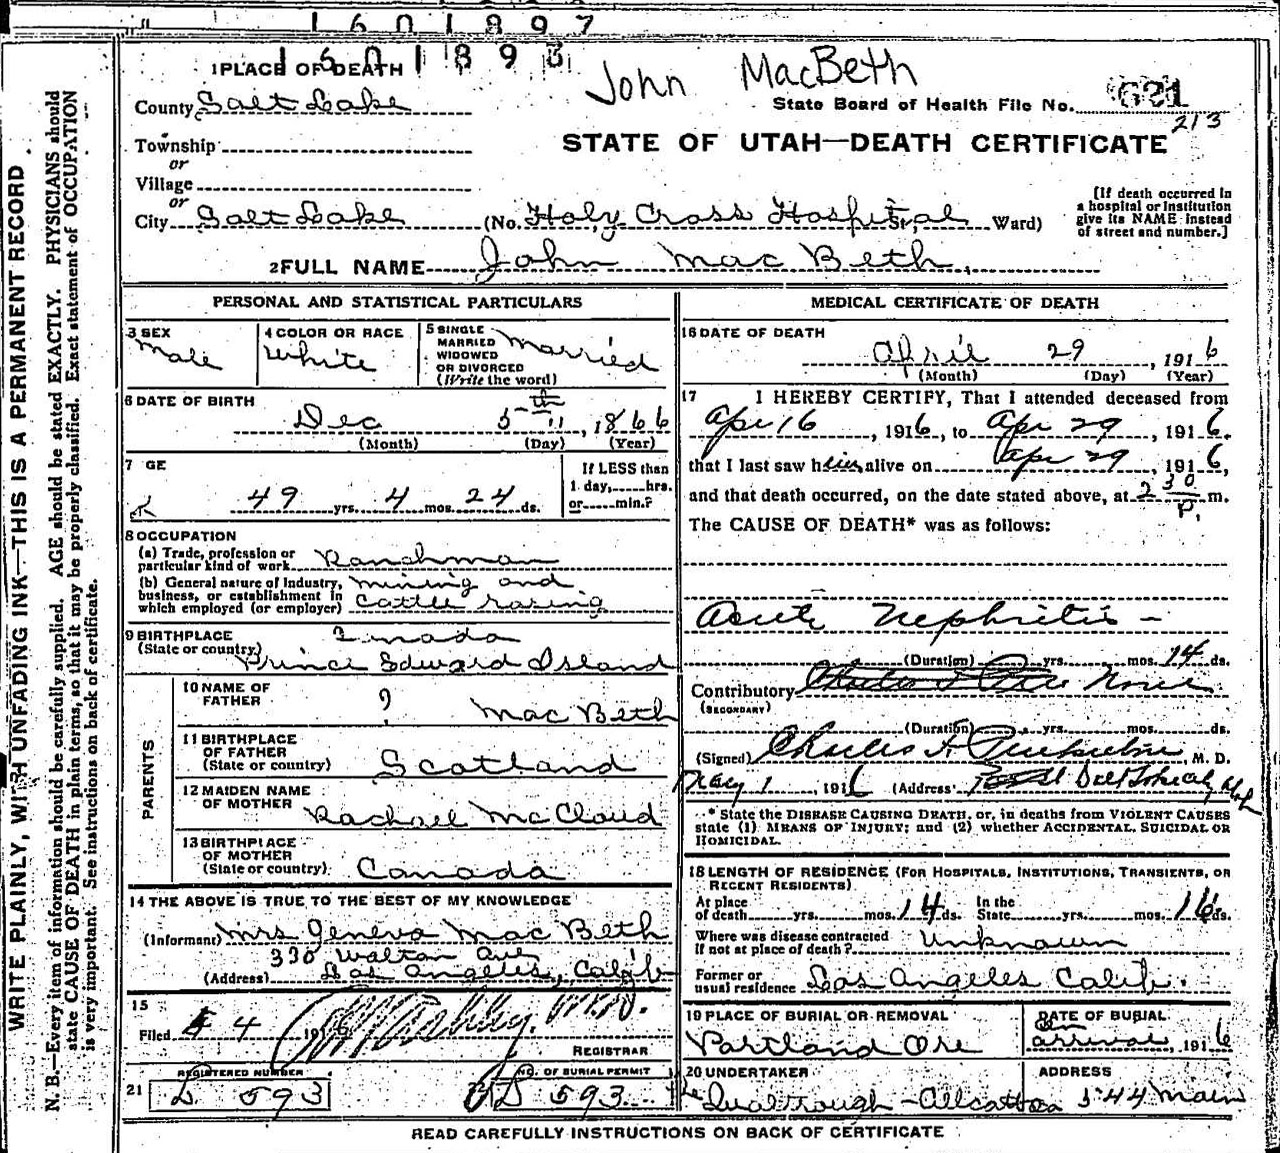 1601897
1601893
John MacBeth
1 PLACE OF DEATH
County Salt Lake
State Board of Health File No. 621
213
Township
STATE OF UTAH—DEATH CERTIFICATE
or
Village
or
City Salt Lake (No. Holy Cross Hospital St.; Ward)
[If death occurred in
a hospital or institution
give its NAME instead
of street and number.]
2 FULL NAME John Mac Beth
PERSONAL AND STATISTICAL PARTICULARS
3 SEX
Male
4 COLOR OR RACE
White
5 SINGLE
MARRIED
WIDOWED
OR DIVORCED
(Write the word)
Married
6 DATE OF BIRTH
Dec 5th, 1866
(Month) (Day) (Year)
7 GE
49 yrs. 4 mos. 24 ds.
If LESS than
1 day, hrs.
or min.?
8 OCCUPATION
(a) Trade, profession or
particular kind of work Ranchman
(b) General nature of Industry,
business, or establishment in
which employed (or employer)
mining and
cattle raring
9 BIRTHPLACE
(State or country)
Canada
Prince Edward Island
PARENTS
10 NAME OF
FATHER
? Mac Beth
11 BIRTHPLACE
OF FATHER
(State or country) Scotland
12 MAIDEN NAME
OF MOTHER
Rachael McCloud
13 BIRTHPLACE
OF MOTHER
(State or country) Canada
14 THE ABOVE IS TRUE TO THE BEST OF MY KNOWLEDGE
(Informant) Mrs Geneva Mac Beth
330 Walton Ave
(Address) Los Angeles, Calif
15
Filed 5 4 1916
REGISTRAR
REGISTERED NUMBER
21 D 593
NO. OF BURIAL PERMIT
D 593
MEDICAL CERTIFICATE OF DEATH
16 DATE OF DEATH
April 29, 1916
(Month) (Day) (Year)
17 I HEREBY CERTIFY, That I attended deceased from
Apr 16, 1916, to Apr 29, 1916.
that I last saw him alive on Apr 29, 1916,
and that death occurred, on the date stated above, at 2 30 P. m.
The CAUSE OF DEATH* was as follows:
Acute Nephritis —
(Duration) yrs. mos. 14 ds.
Contributory None
(SECONDARY)
(Duration) yrs. mos. ds.
(Signed) Charles F., M. D.
May 1, 1916 (Address)
* State the DISEASE CAUSING DEATH, or, in deaths from VIOLENT CAUSES
state (1) MEANS OF INJURY; and (2) whether ACCIDENTAL, SUICIDAL OR
HOMICIDAL.
18 LENGTH OF RESIDENCE (FOR HOSPITALS, INSTITUTIONS, TRANSIENTS, OR
RECENT RESIDENTS)
At place
of death yrs. mos. 14 ds.
In the
State yrs. mos. 16 ds.
Where was disease contracted
if not at place of death? Unknown
Former or
usual residence Los Angeles Calif.
19 PLACE OF BURIAL OR REMOVAL
Portland Ore
DATE OF BURIAL
On
arrival, 1916
20 UNDERTAKER
ADDRESS
544 Main
READ CAREFULLY INSTRUCTIONS ON BACK OF CERTIFICATE
WRITE PLAINLY, WITH UNFADING INK—THIS IS A PERMANENT RECORD
N. B.—Every item of information should be carefully supplied. AGE should be stated EXACTLY. PHYSICIANS should
state CAUSE OF DEATH in plain terms, so that it may be properly classified. Exact statement of OCCUPATION
is very important. See instructions on back of certificate.